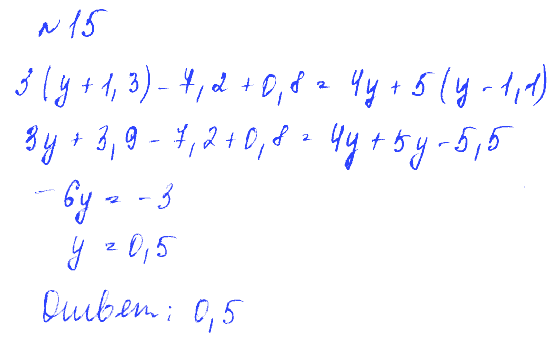 № 15
3(y + 1,3) - 7,2 + 0,8 = 4y + 5(y - 1,1)
3y + 3,9 - 7,2 + 0,8 = 4y + 5y - 5,5
-6y = -3
y = 0,5
Ответ: 0,5